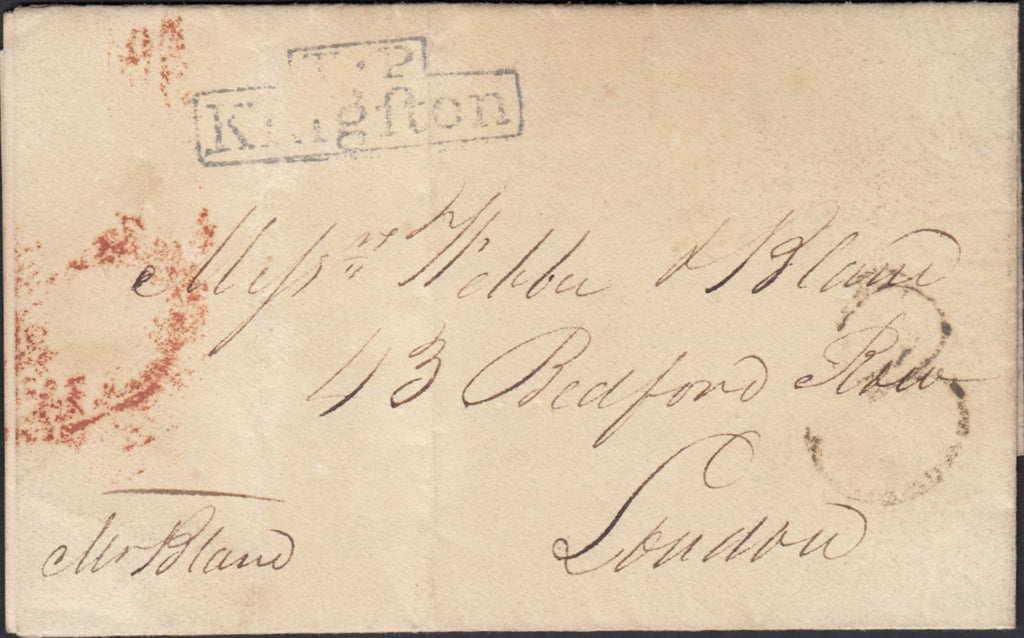 Kingſton
Meſsrs Webber & Bland
43 Bedford Row
London
Mr Bland
3